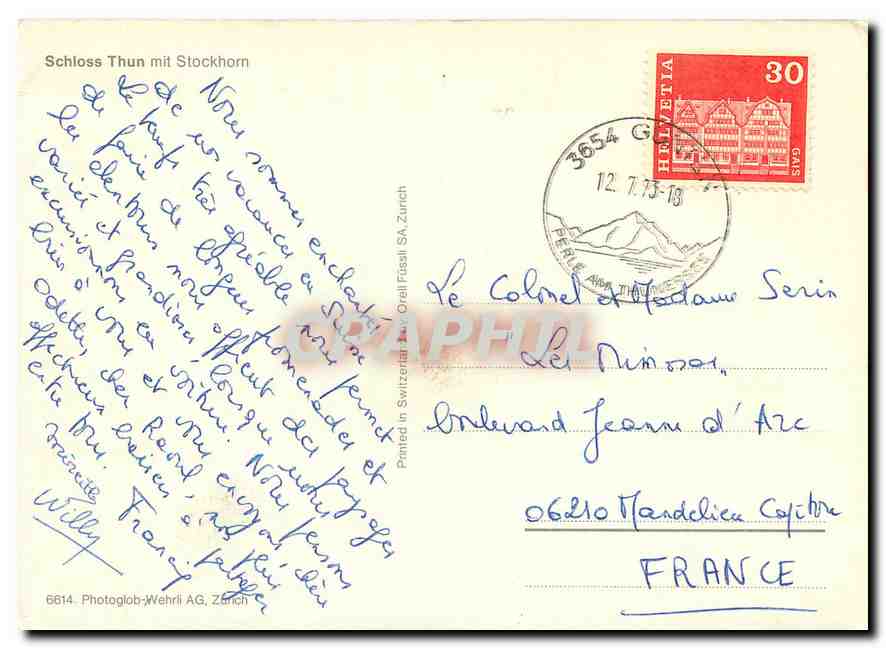 Schloss Thun mit Stockhorn
Nous sommes enchantés
de nos vacances en Suisse
Le temps très agréable nous permet
de faire de longues promenades et
les alentours nous offrent des paysages
variés et grandioses lorsque nous
excursionnons en voiture. Nous pensons
bien à vous et vous envoyons chère
Odette, cher Raoul,
affectueux baisers, à partager
entre tous.
Francis
Willy
6614. Photoglob-Wehrli AG, Zürich
Printed in Switzerland by Orell Füssli SA, Zurich
CRAPHIL
HELVETIA
30
GAIS
3654
12.7.73-18
PERLE AM THUNERSEE
Le Colonel et Madame Serin
"Les Mimosas"
boulevard Jeanne d'Arc
06210 Mandelieu Capitou
FRANCE